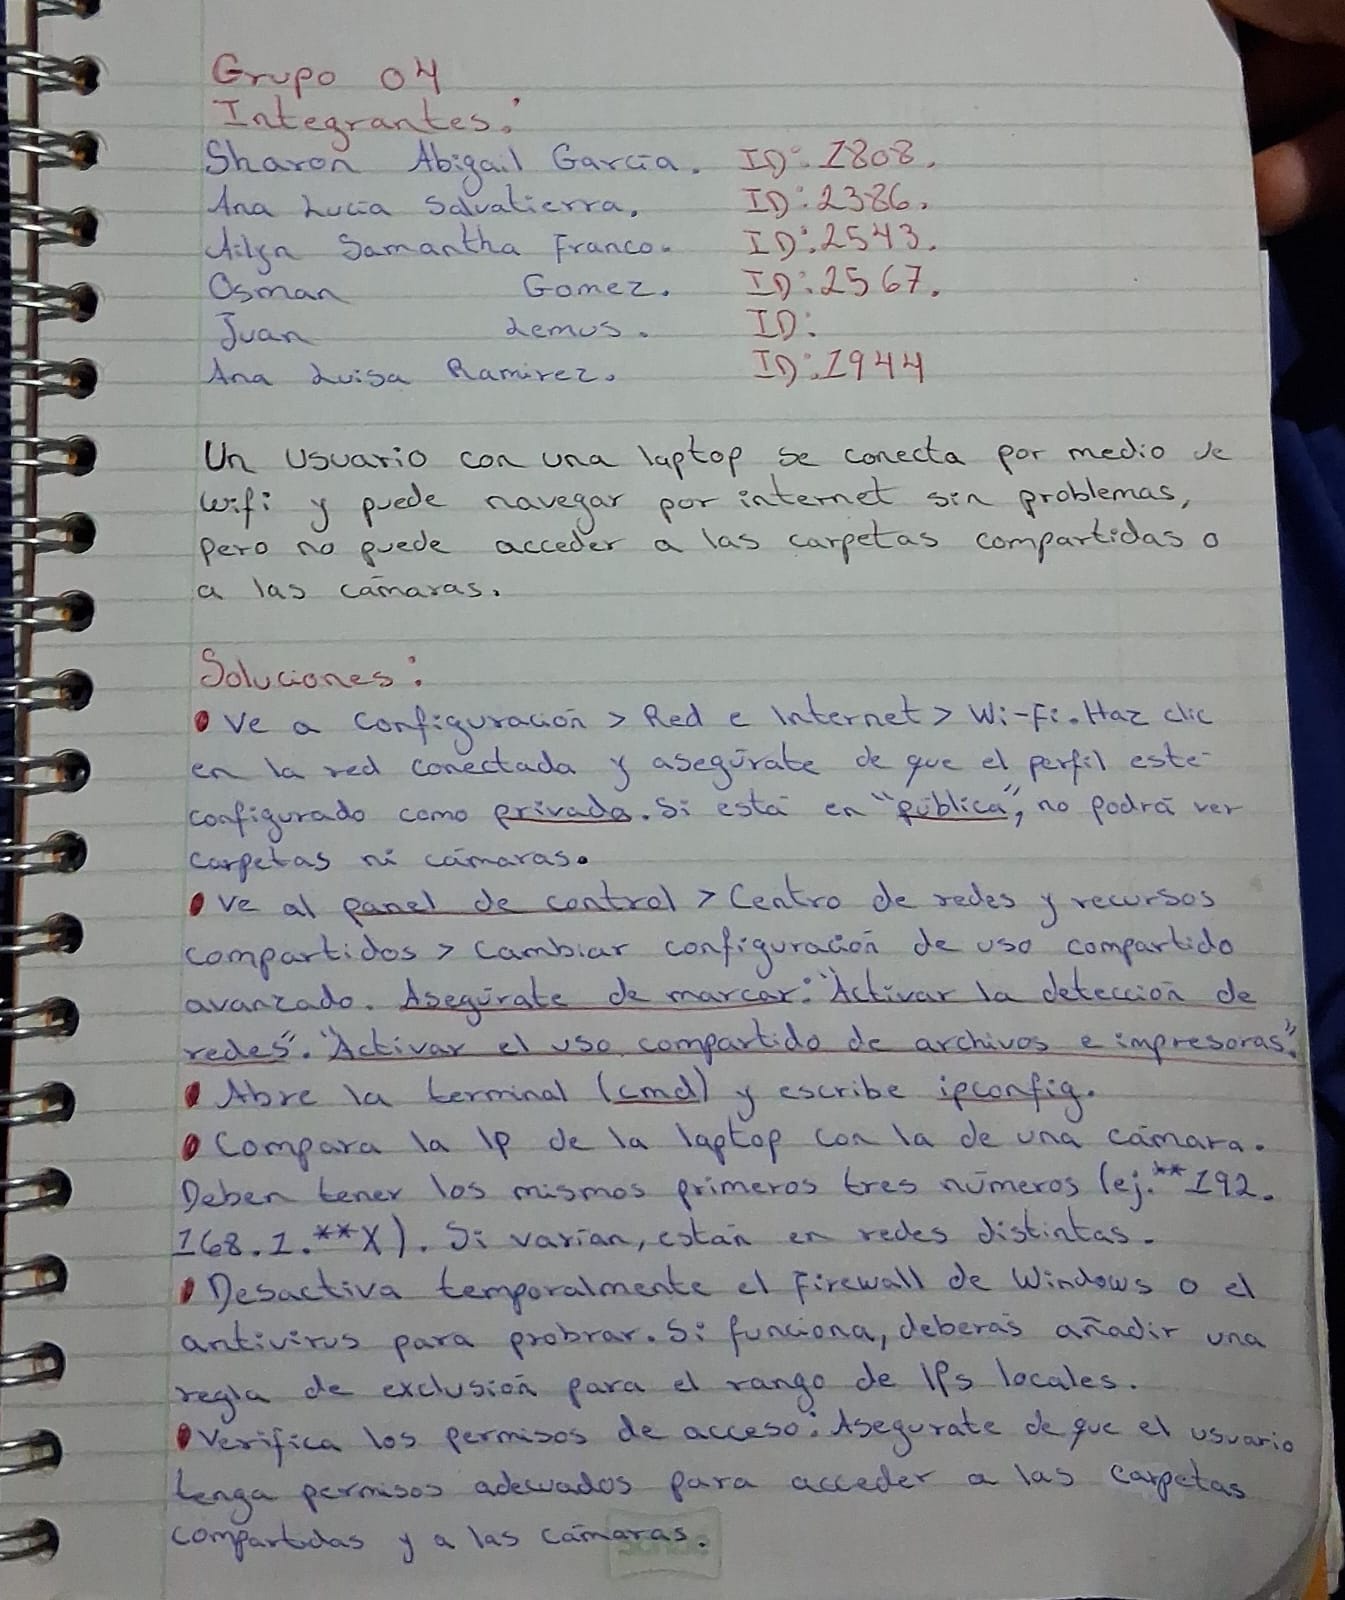 Grupo 04
Integrantes:
Sharon Abigail García. ID: 1808.
Ana Lucia Salvatierra. ID: 2386.
Ailyn Samantha Franco. ID: 2543.
Osman Gomez. ID: 2567.
Juan Lemus. ID:
Ana Luisa Ramirez. ID: 1944
Un usuario con una laptop se conecta por medio de
wifi y puede navegar por internet sin problemas,
pero no puede acceder a las carpetas compartidas o
a las cámaras.
Soluciones:
• Ve a configuración > Red e Internet > Wi-Fi. Haz clic
en la red conectada y asegúrate de que el perfil esté
configurado como privada. Si está en "pública", no podrá ver
carpetas ni cámaras.
• Ve al panel de control > Centro de redes y recursos
compartidos > Cambiar configuración de uso compartido
avanzado. Asegúrate de marcar: "Activar la detección de
redes". "Activar el uso compartido de archivos e impresoras".
• Abre la terminal (cmd) y escribe ipconfig.
• Compara la IP de la laptop con la de una cámara.
Deben tener los mismos primeros tres números (ej. **192.
168.1.**X). Si varían, están en redes distintas.
• Desactiva temporalmente el Firewall de Windows o el
antivirus para probrar. Si funciona, deberás añadir una
regla de exclusión para el rango de IPs locales.
• Verifica los permisos de acceso: Asegurate de que el usuario
tenga permisos adecuados para acceder a las carpetas
compartidas y a las cámaras.